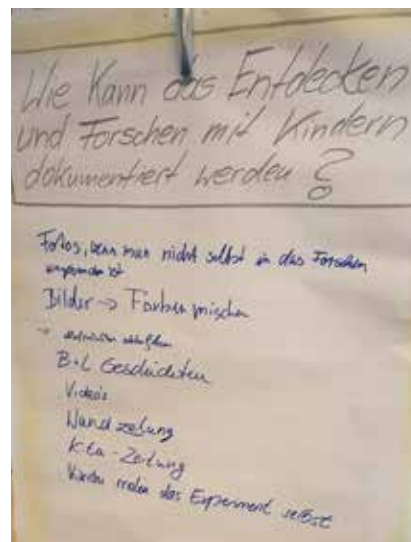 Wie kann das Entdecken
und Forschen mit Kindern
dokumentiert werden ?
Fotos, wenn man nicht selbst in das Forschen
ist
Bilder → Farben mischen
→
B+L Geschichten
Videos
Wandzeitung
Kita-Zeitung
Kinder malen das Experiment selbst